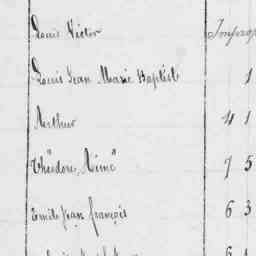 Louis Victor Improp
Louis Jean Marie Baptist 1
Arthur 4 1
Théodore, Aimé 7 5
Emile Jean François 6 3